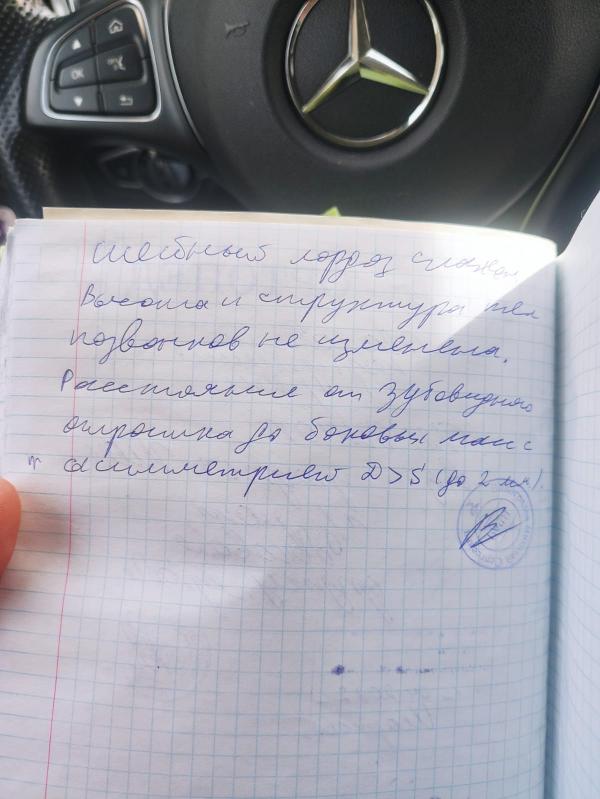 OK
Шейный лордоз сглажен
Высота и структура тел
позвонков не изменена.
Расстояние от зубовидного
отростка до боковых масс
с асимметрией D>S (до 2 мм).